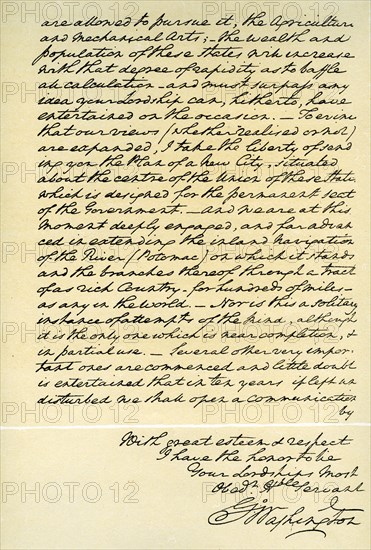 are allowed to pursue it, the Agriculture
and Mechanical Arts; – the wealth and
population of these States will increase
with that degree of rapidity as to baffle
all calculation – and must surpass any
idea your Lordship can, hitherto, have
entertained on the occasion. – To evince
that our views (whether realised or not)
are expanded, I take the liberty of send
ing you the Plan of a New City, situated
about the centre of the Union of these States
which is designed for the permanent seat
of the Government. – And we are at this
moment deeply engaged, and far advan
ced in extending the inland Navigation
of the River (Potomac) on which it stands
and the branches thereof through a tract
of as rich Country – for hundreds of miles –
as any in the world. – Nor is this a solitary
instance of attempts of the kind, although
it is the only one which is near completion, &
in partial use. – Several other very impor-
tant ones are commenced and little doubt
is entertained that in ten years if left un
disturbed we shall open a communication
by
With great esteem & respect
I have the honor to be
Your Lordships most
Obedt Hble Servant
Go Washington
PHOTO 12